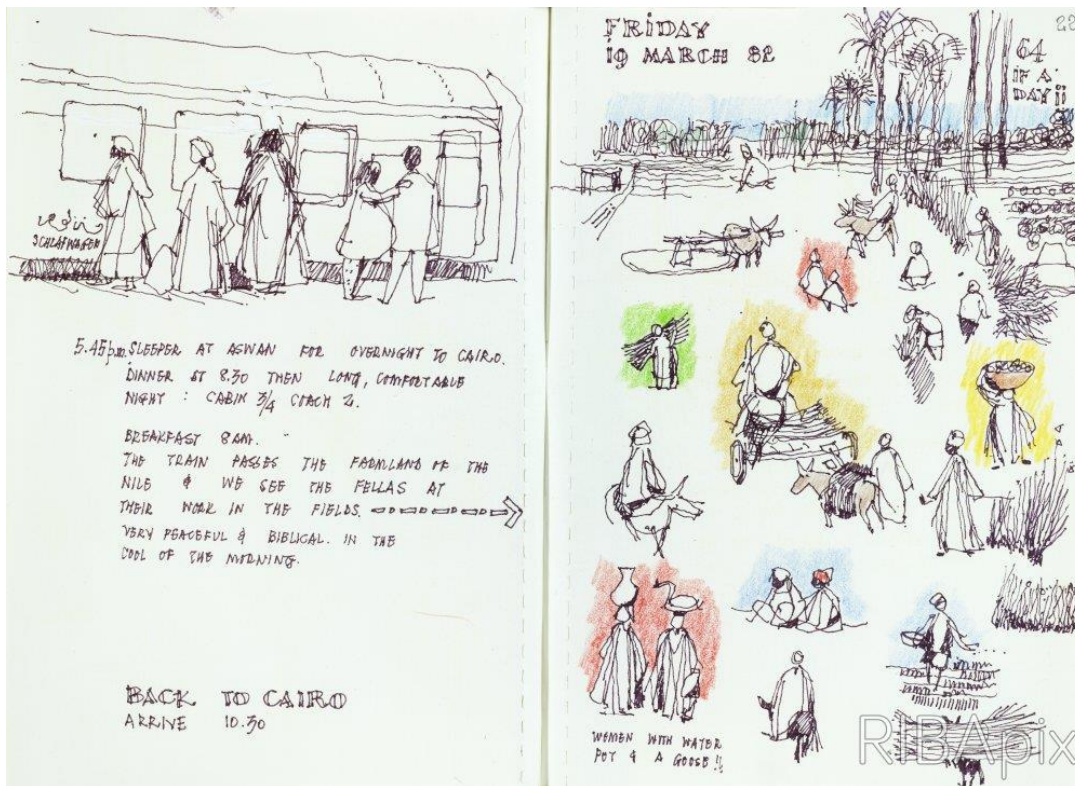 SCHLAFWAGEN
5.45 p.m. SLEEPER AT ASWAN FOR OVERNIGHT TO CAIRO.
DINNER AT 8.30 THEN LONG, COMFORTABLE
NIGHT : CABIN 3/4 COACH 2.
BREAKFAST 8AM.
THE TRAIN PASSES THE FARMLAND OF THE
NILE & WE SEE THE FELLAS AT
THEIR WORK IN THE FIELDS.
VERY PEACEFUL & BIBLICAL. IN THE
COOL OF THE MORNING.
BACK TO CAIRO
ARRIVE 10.30
FRIDAY
19 MARCH 82
64
IF A
DAY!!
WOMEN WITH WATER
POT & A GOOSE!!
RIBApix